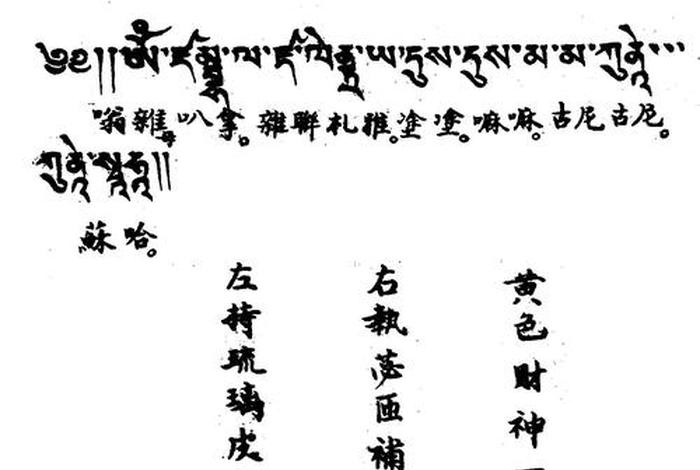 ༄༅།།ཨོཾ་ཛམྦྷ་ལ་ཛ་ལེནྡྲ་ཡ་དུས་དུས་མ་མ་
嗡雜母叭拿。雜聯札雅。塗塗。嘛嘛。古尼古尼。
蘇哈。
黄色財神
右執匝補
左持琉璃皮